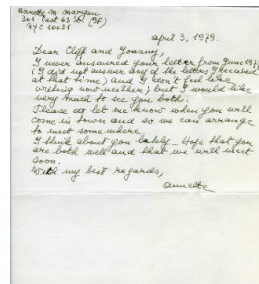 annette m.
301 East 63 St (9F)
NYC 10021
april 3, 1979.
Dear Cliff and
I never answered your letter from June 197
(I did not answer any of the letters received
at that time) and I don't feel like
writing now neither; but I would like
very much to see you both.
Please do let me know when you will
come in town and so we can arrange
to meet somewhere.
I think about you lately – Hope that you
are both well and that we will meet
soon.
With my best regards,
annette